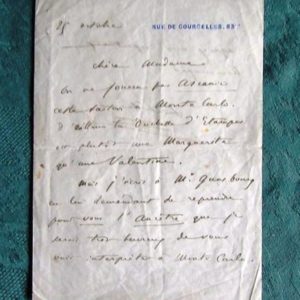 25 octobre
RUE DE COURCELLES, 83 bis
chère Madame
On ne jouera pas Ascanio
cette saison à Monte Carlo.
D'ailleurs la Duchesse d'Etampes
est plutôt une Marguerite
qu'une Valentine.
Mais j'écris à Mr Gunsbourg
en lui demandant de reprendre
pour vous l'Ancêtre que je
serais très heureux de vous
voir interpréter à Monte Carlo.